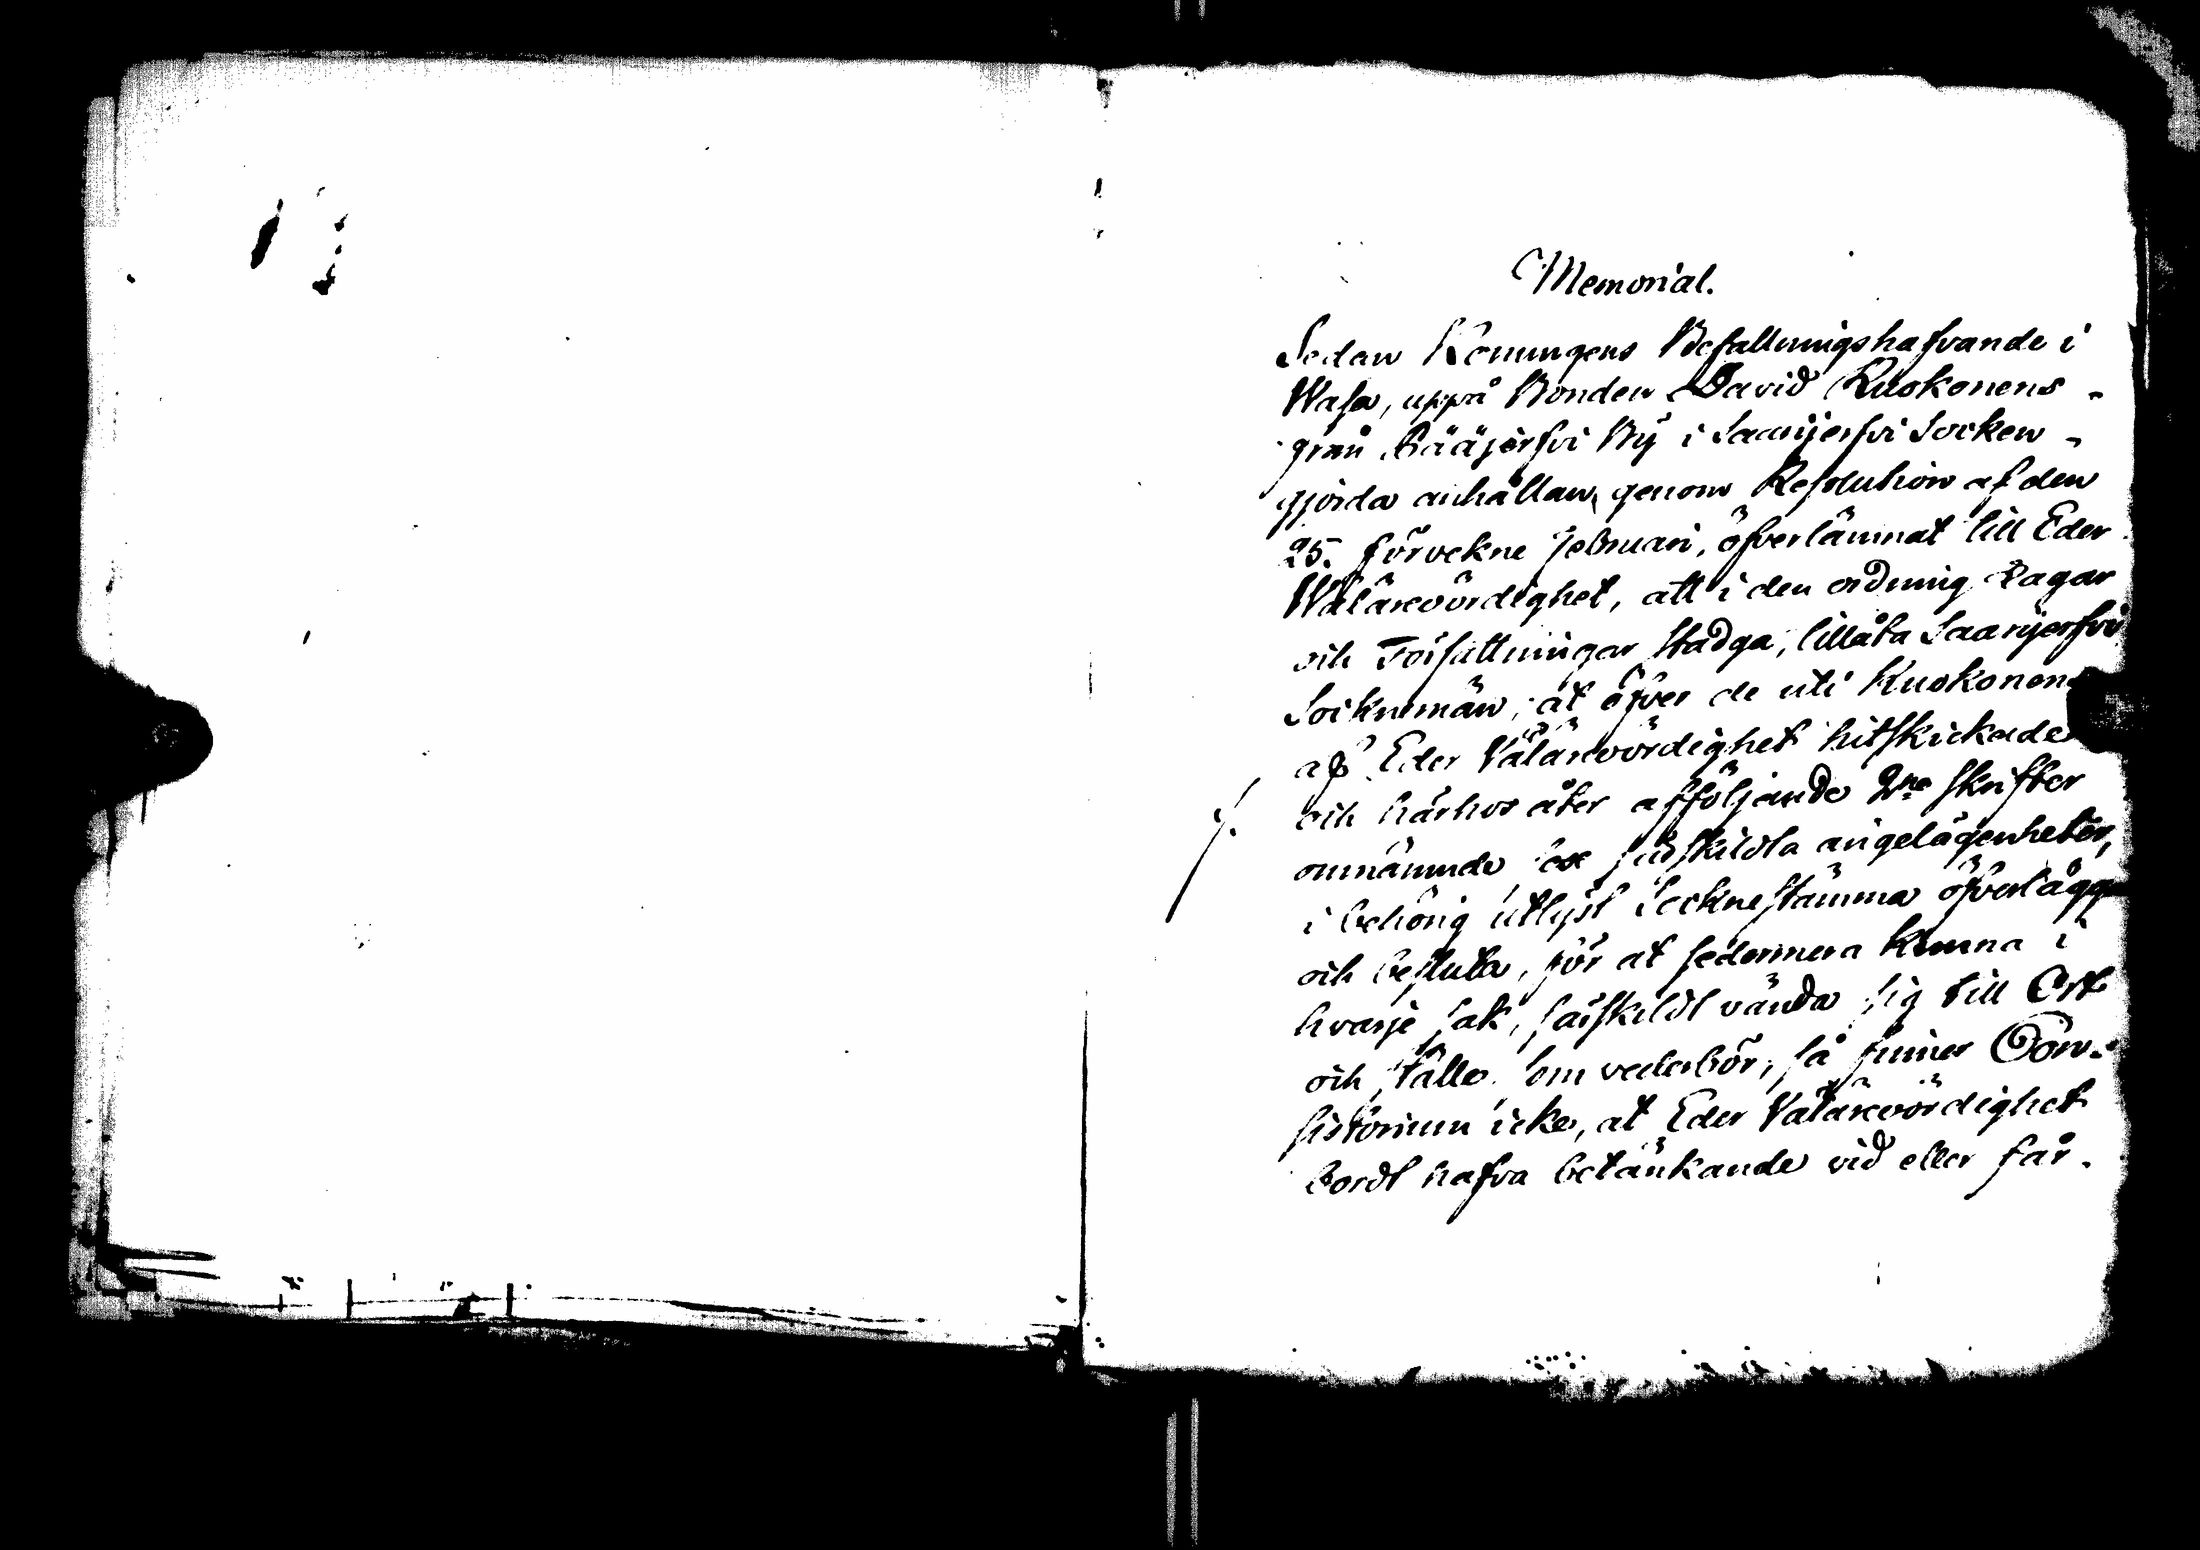 Memorial.
Sedan Konungens Befallningshafvande i
Wasa, uppå Bonden David Kuokonens
från Pääjerfvi By i Saarijerfvi Socken
gjorda anhållan, genom Resolution af den
25. förvekne februari, öfverlämnat till Eder
Wälärevördighet, att i den ordning Lagar
och Författningar stadga, tillåta Saarijerfvi
Socknemän, at öfver de uti Kuokonens
af Eder Välärevördighet hitskickade
och härhos åter afföljande 2ne skrifter
omnämnde särskildta angelägenheter,
i behörig utlyst Socknestämma öfverlägga
och besluta, för at sedermera kunna i
hvarje sak, särskildt vända sig till Ort
och ställe som vederbör, så finner Con-
sistorium icke, at Eder Välärevördighet
bordt hafva betänkande vid eller får.